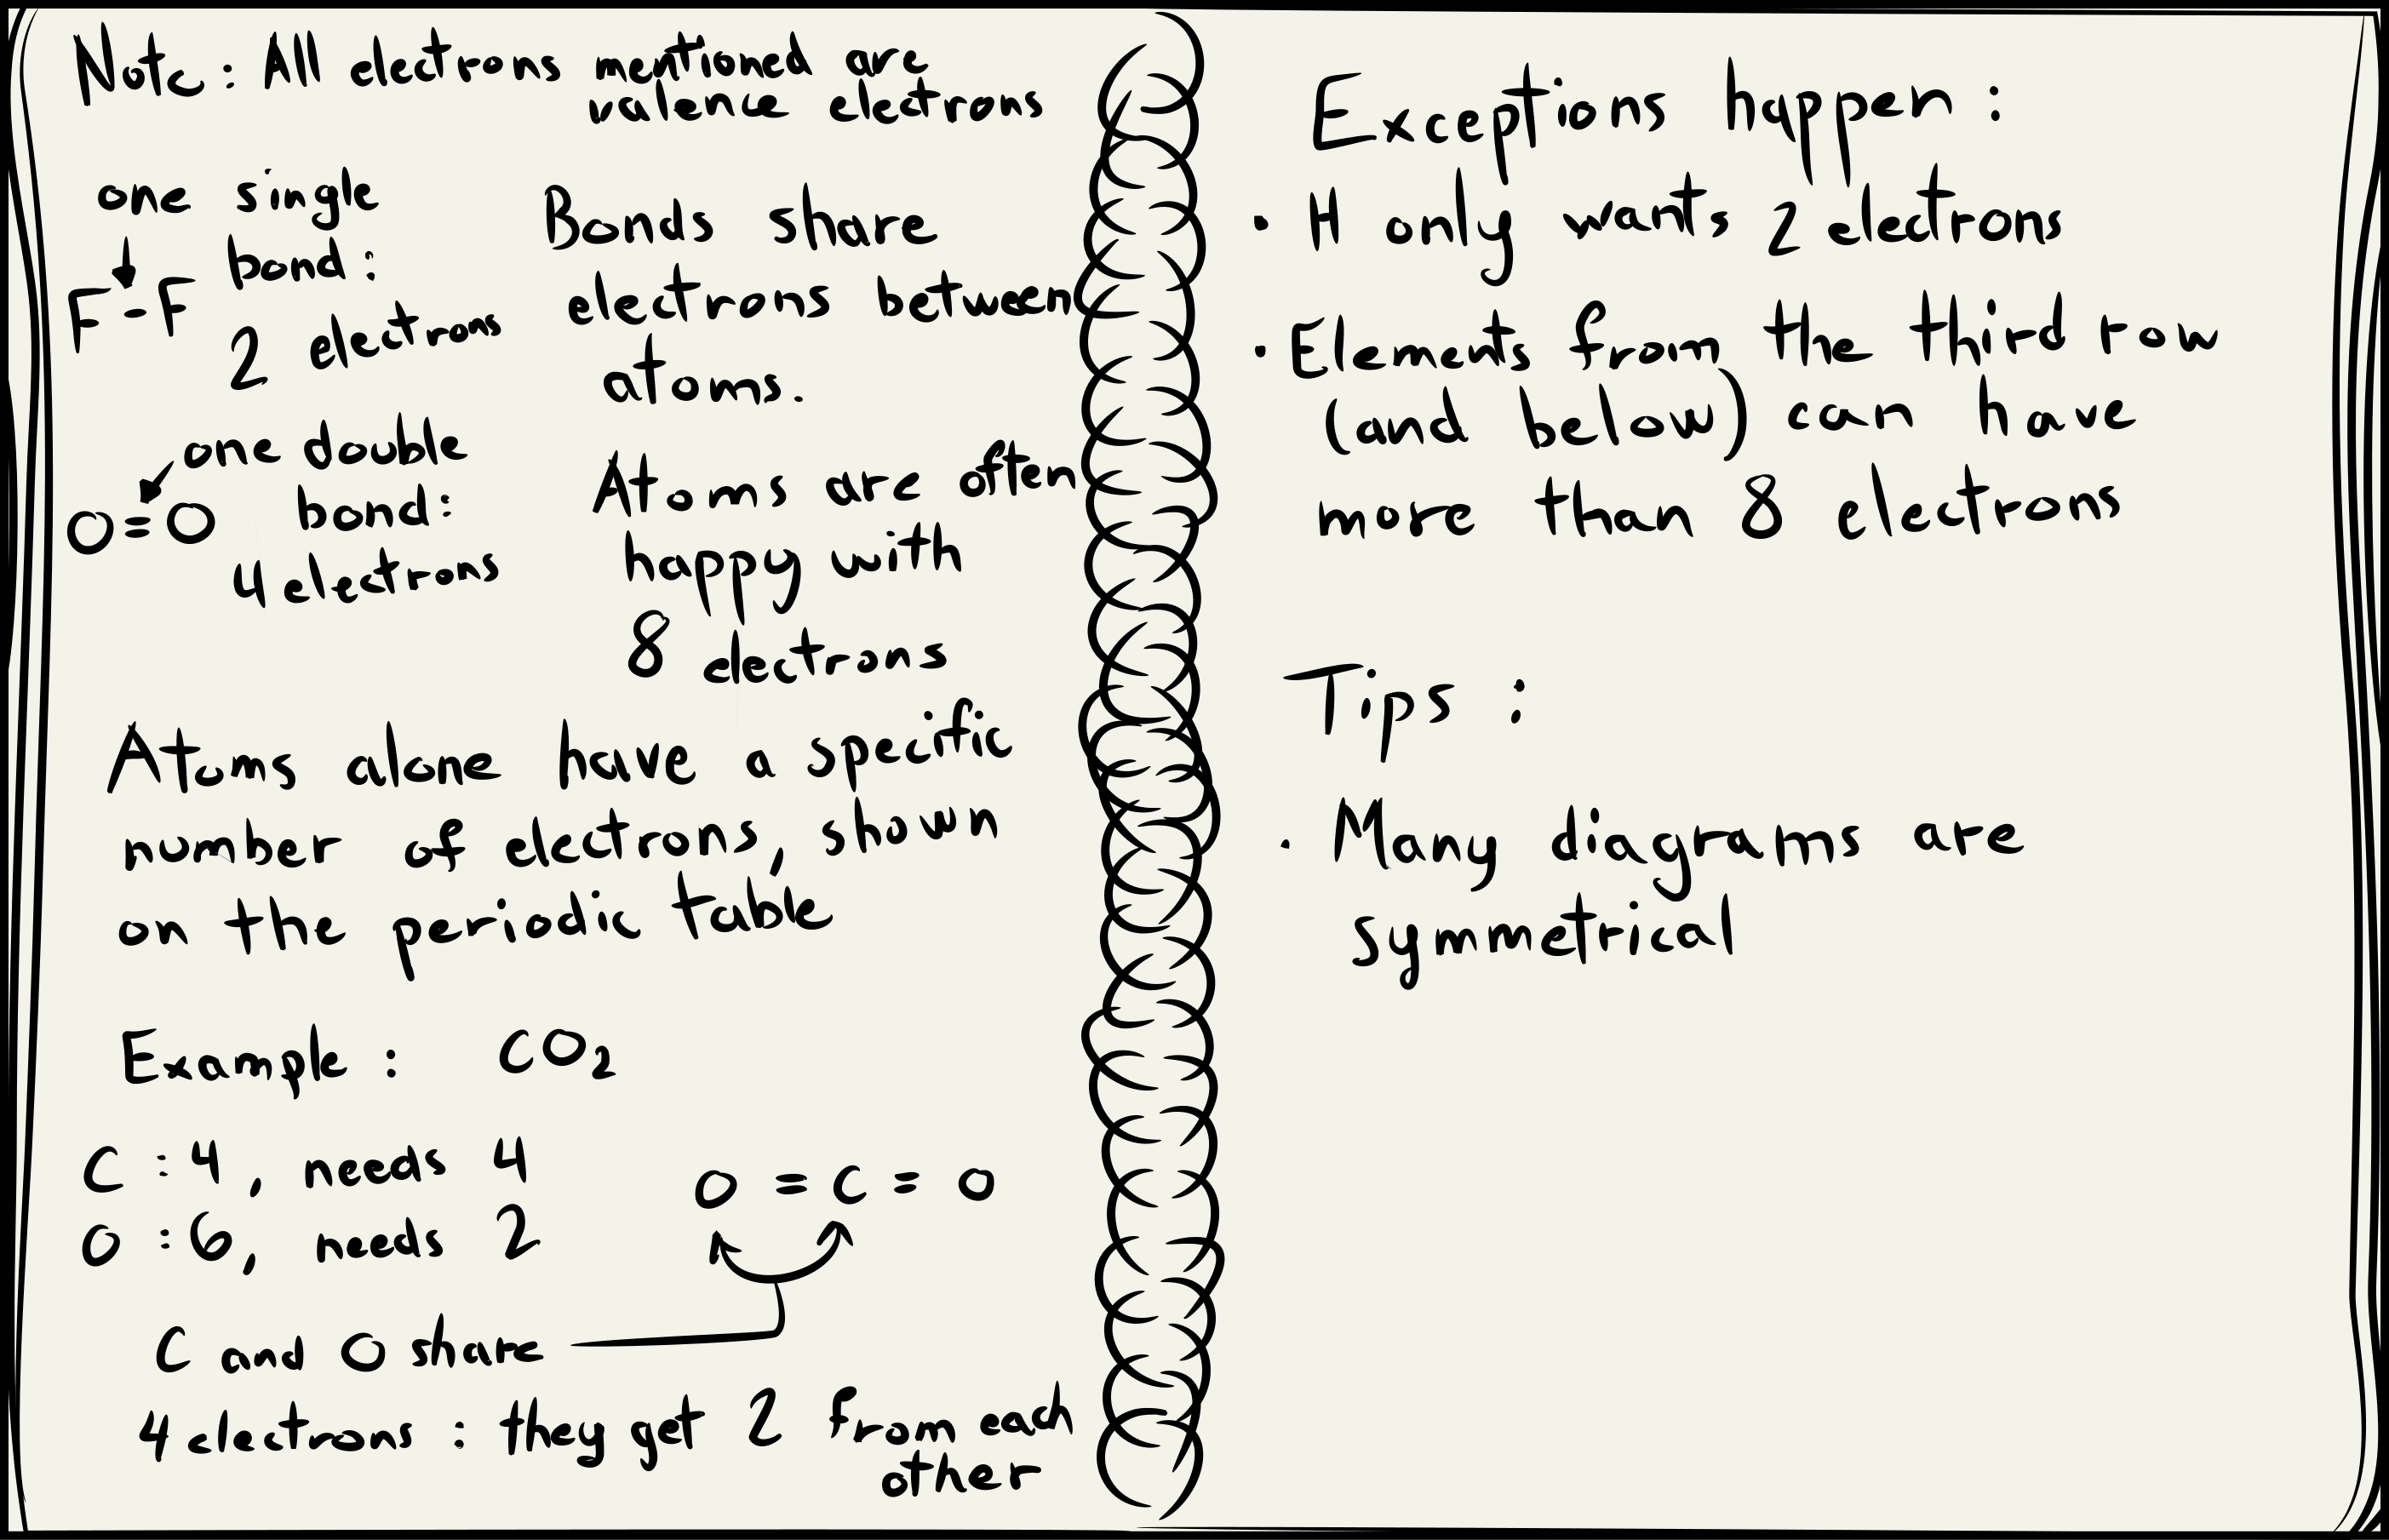 Note : All electrons mentioned are
valence electrons
one single
bond :
F-F
2 electrons
one double
bond:
O=O
4 electrons
Bonds share
electrons between
atoms.
Atoms are often
happy with
8 electrons
Atoms alone have a specific
number of electrons, shown
on the periodic table
Example : CO₂
C : 4, needs 4
O : 6, needs 2
O = C = O
C and O share
4 electrons : they get 2 from each
other
Exceptions happen :
· H only wants 2 electrons
· Elements from the third row
(and below) can have
more than 8 electrons
Tips :
· Many diagrams are
symmetrical